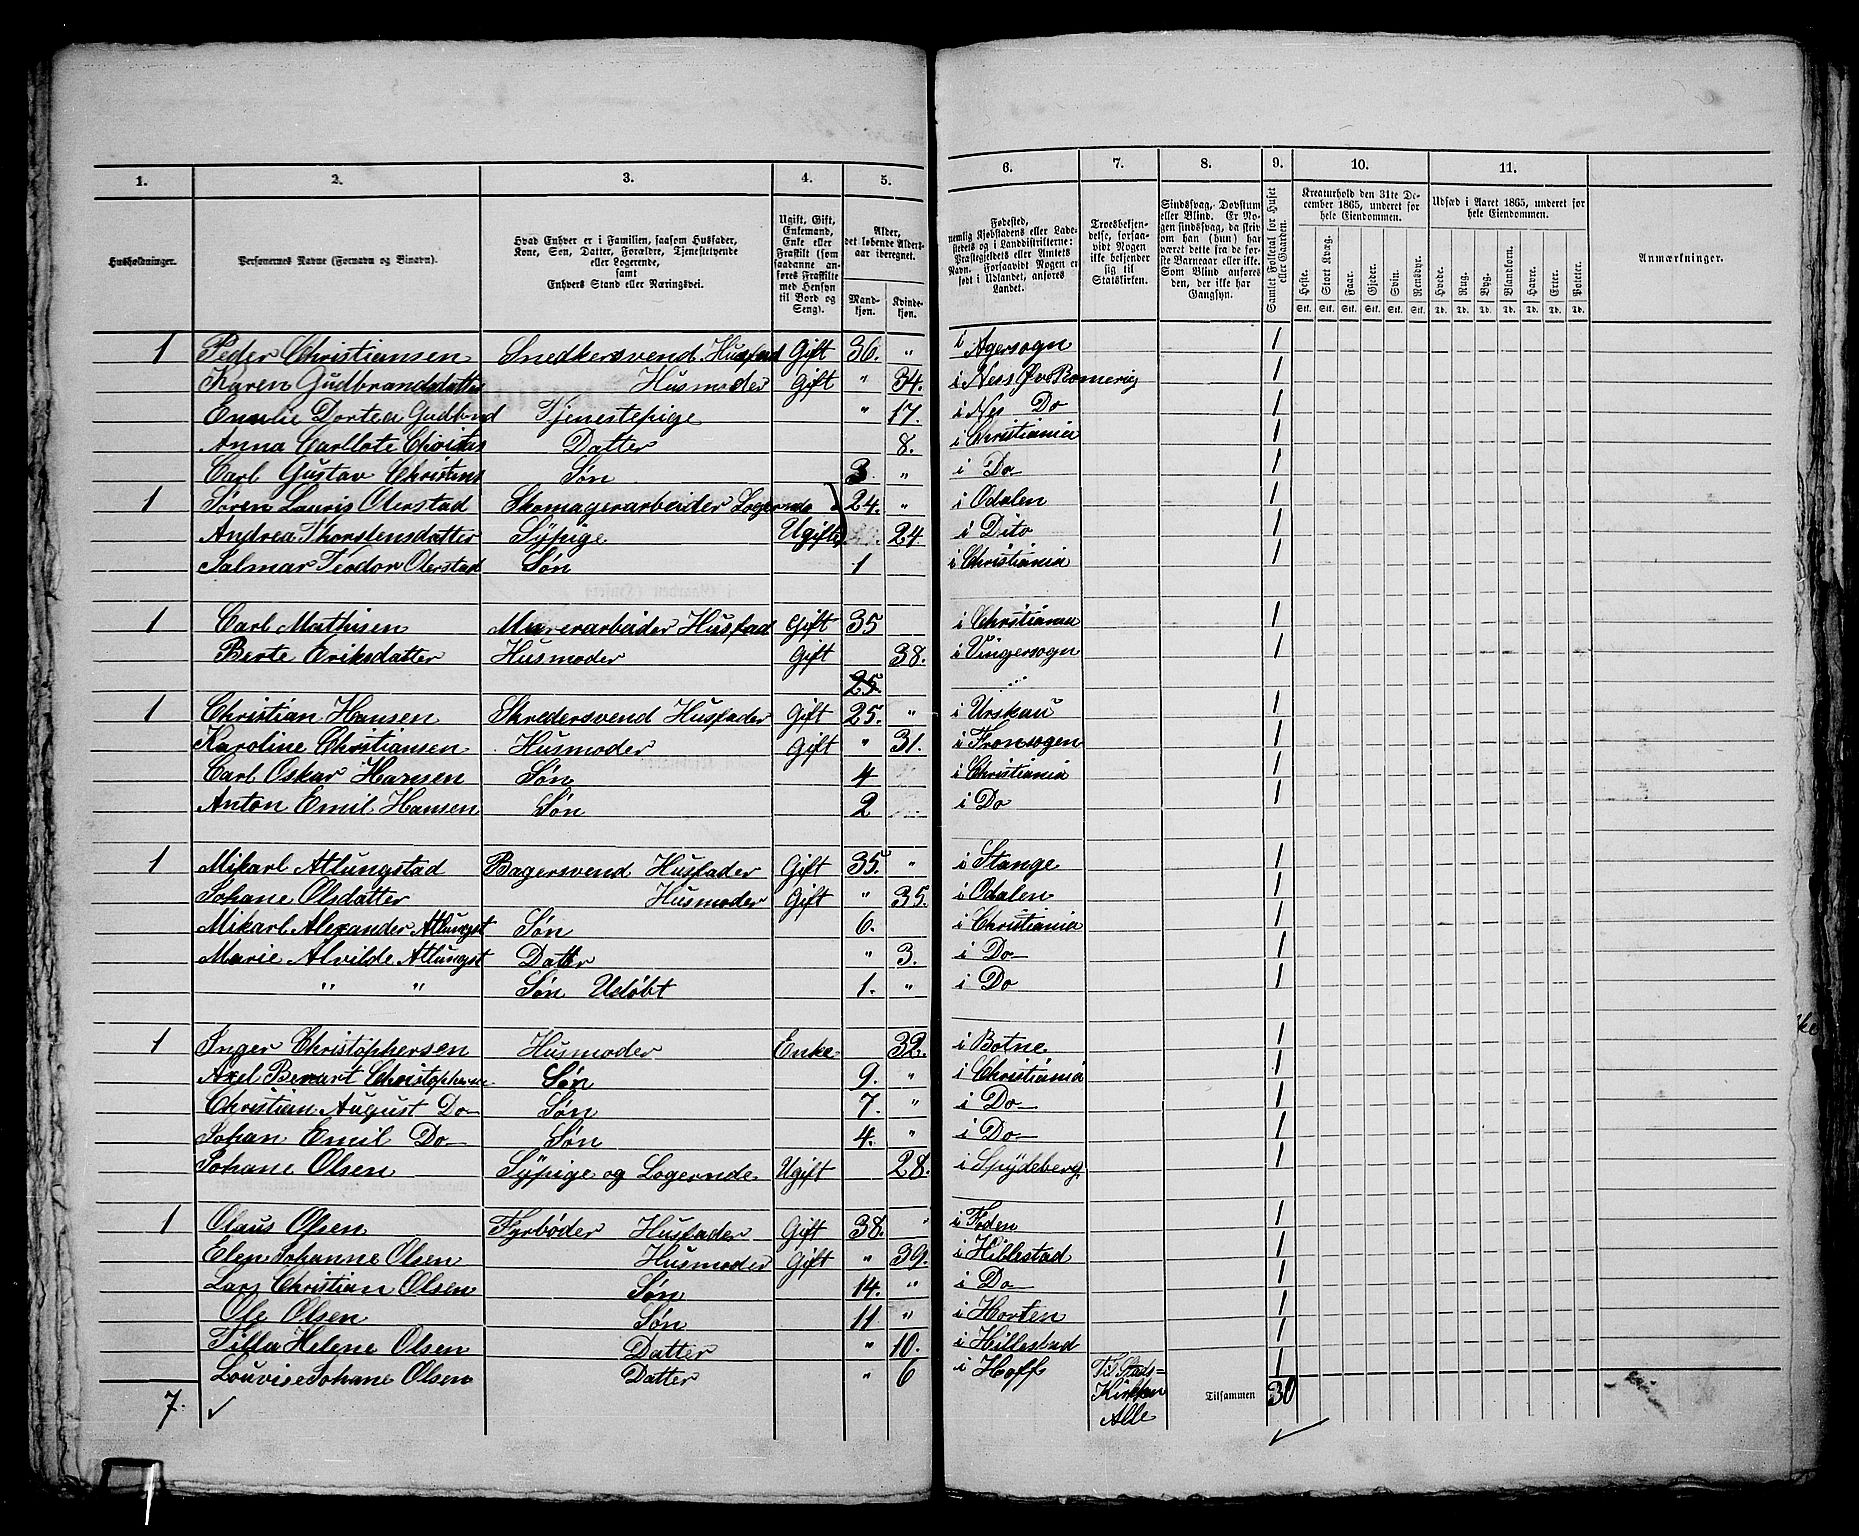 1. 2. 3. 4. 5. 6. 7. 8. 9. 10. 11.
Husholdninger.
Personernes Navne (Fornavn og Tilnavn).
Hvad Enhver er i Familien, saasom Husfader, Kone, Søn, Datter, Forældre, Tjenestetyende eller Logerende, samt Enhvers Stand eller Næringsvei.
Ugift, Gift, Enkemand, Enke eller Fraskilt (som saadanne anføres Fraskilte med Hensyn til Bord og Seng).
Alder, det løbende Alders-aar iberegnet.
Mand-kjøn. Kvinde-kjøn.
Fødested, nemlig Kjøbstadens eller Ladestedets og i Landdistrikterne: Præstegjeldets eller Amtets Navn. Forsaavidt Nogen er født i Udlandet, anføres Landet.
Troesbekjendelse, forsaavidt Nogen ikke bekjender sig til Statskirken.
Sindssvag, Døvstum eller Blind. Er Nogen sindssvag, da skriv om han (hun) har været dette fra de første Barneaar eller ikke. Som Blind anføres den, der ikke har Gangsyn.
Samlet Folketal for Huset eller Gaarden.
Kreaturhold den 31te December 1865, underet for hele Eiendommen.
Heste. Stort Kvæg. Faar. Gjeder. Svin. Rensdyr.
Stk. Stk. Stk. Stk. Stk. Stk.
Udsæd i Aaret 1865, underet for hele Eiendommen.
Hvede. Rug. Byg. Blandkorn. Havre. Erter. Poteter.
Td. Td. Td. Td. Td. Td. Td.
Anmærkninger.
1 Peder Christiansen Snedkersvend Husfad Gift 36. " i Agersogn 1
Karen Gudbrandsdatter Husmoder Gift " 34. i Ness Øv Romerig 1
Emelie Dortea Gudbnd Tjenestepige " 17. i Nes Do 1
Anna Carllote Christns Datter 8. i Christiania 1
Carl Gustav Christins Søn 3 " i Do 1
1 Søren Lauris Olerstad Skomagerarbeider Logernde 24. " i Odalen 1
Andrea Thorstensdatter Sÿpige Ugift 24. i Dito 1
Salmar Teodor Olerstad Søn 1 i Christiania 1
1 Carl Mathisen Murerarbeider Husfad Gift 35 i Christiania 1
Berte Eriksdatter Husmoder Gift 38. i Vingersogn 1
25
1 Christian Hansen Skredersvend Husfader Gift 25. " i Urskau 1
Karoline Christiansen Husmoder Gift " 31. i Fronsogen 1
Carl Oskar Hansen Søn 4 i Christiania 1
Anton Emil Hansen Søn 2 i Do 1
1 Mikarl Atlungstad Bagersvend Husfader Gift 35. " i Stange 1
Johane Olsdatter Husmoder Gift " 35. i Odalen 1
Mikarl Alexander Atlungst Søn 6. i Christiania 1
Marie Alvilde Atlungst Datter " 3. i Do 1
" " Søn Udøbt 1. " i Do 1
1 Inger Christophersen Husmoder Enke 32. i Botne 1
Axel Benart Christophersen Søn 9. " i Christiania 1
Christian August Do Søn 7. " i Do 1
Johan Emil Do Søn 4. " i Do 1
Johane Olsen Sÿpige og Logernde Ugift 28. i Spÿdeberg 1
1 Olaus Olsen Fyrbøder Husfader Gift 38. " i Foden 1
Elen Johanne Olsen Husmoder Gift " 39. i Hillestad 1
Lars Christian Olsen Søn 14. " i Do 1
Ole Olsen Søn 11 " i Horten 1
Tilla Helene Olsen Datter " 10. i Hillestad 1
Louvise Johane Olsen Datter " 6 i Hoff 1
Til Stads=
Kirkken
Alle
7. Tilsammen 30